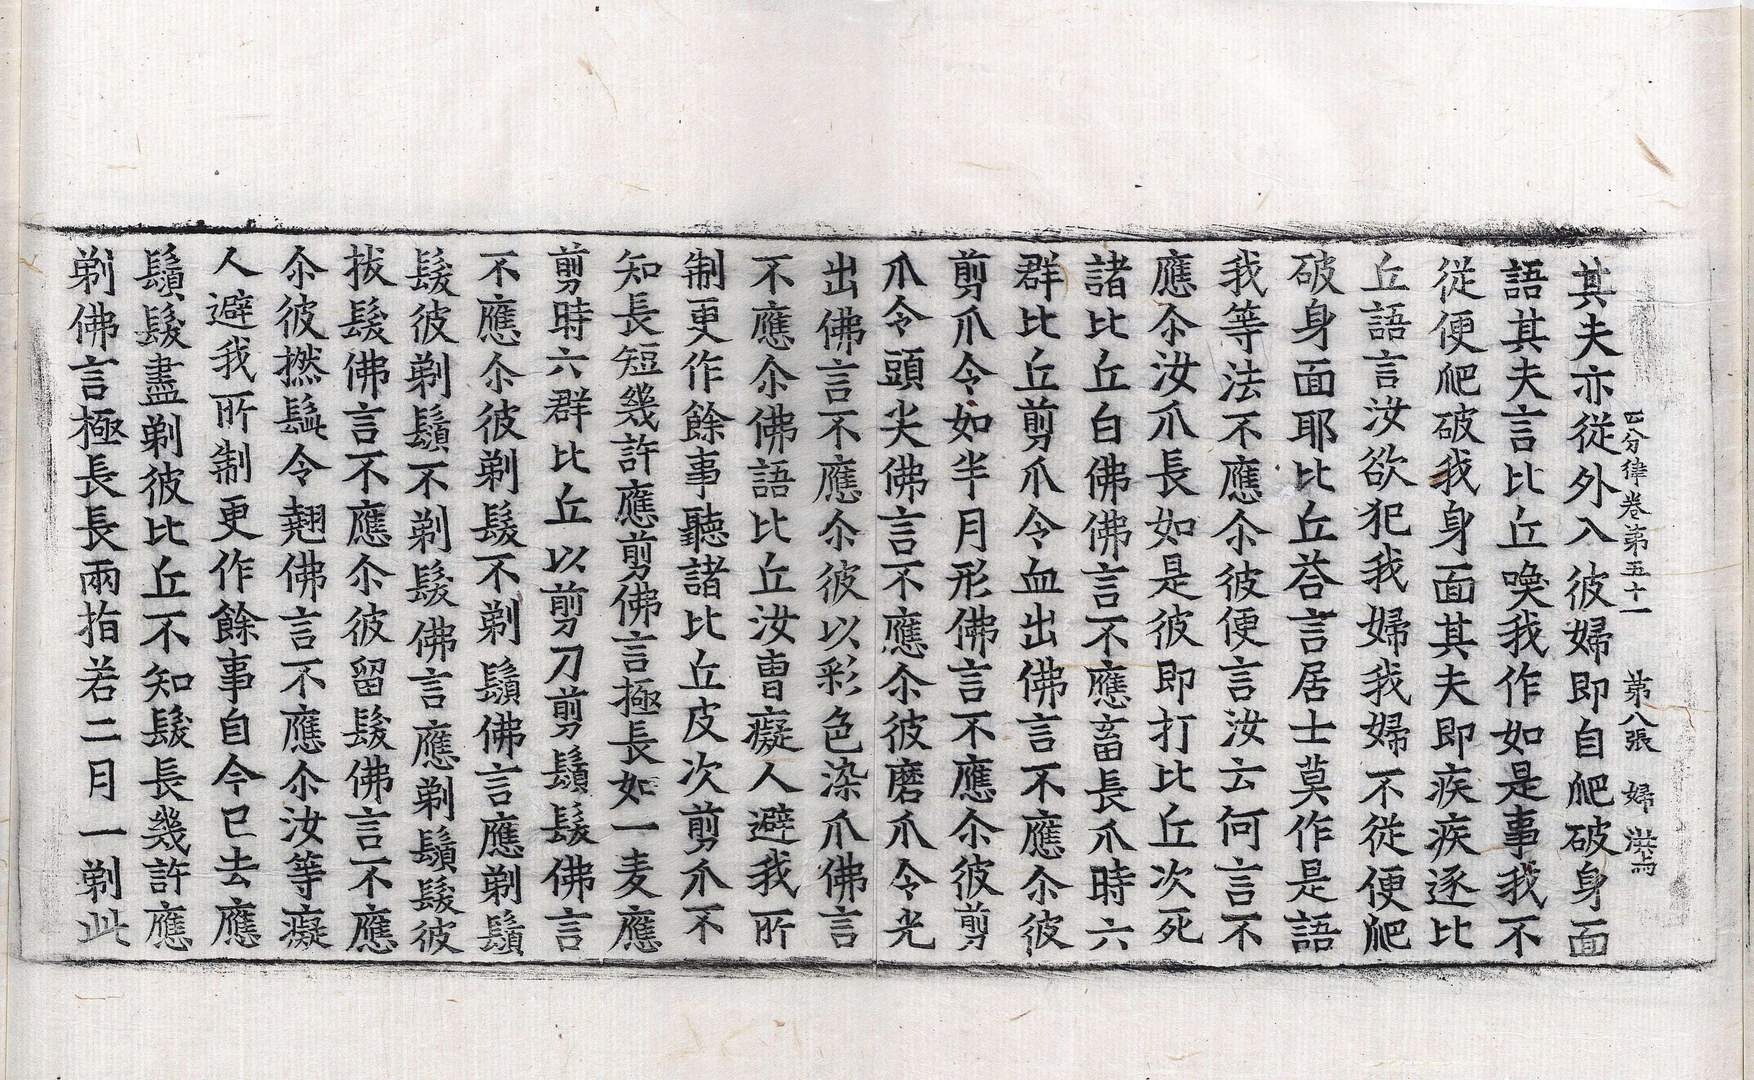 四分律卷第五十一 第八張 婦 洪
其夫亦從外入彼婦即自爬破身面
語其夫言比丘喚我作如是事我不
從便爬破我身面其夫即疾疾逐比
丘語言汝欲犯我婦我婦不從便爬
破身面耶比丘荅言居士莫作是語
我等法不應尒彼便言汝云何言不
應尒汝爪長如是彼即打比丘次死
諸比丘白佛佛言不應畜長爪時六
群比丘剪爪令血出佛言不應尒彼
剪爪令如半月形佛言不應尒彼剪
爪令頭尖佛言不應尒彼磨爪令光
出佛言不應尒彼以彩色染爪佛言
不應尒佛語比丘汝曹癡人避我所
制更作餘事聽諸比丘皮次剪爪不
知長短幾許應剪佛言極長如一麦應
剪時六群比丘以剪刀剪鬚髮佛言
不應尒彼剃髮不剃鬚佛言應剃鬚
髮彼剃鬚不剃髮佛言應剃鬚髮彼
拔髮佛言不應尒彼留髮佛言不應
尒彼撚髯令翹佛言不應尒汝等癡
人避我所制更作餘事自今已去應
鬚髮盡剃彼比丘不知髮長幾許應
剃佛言極長長兩指若二月一剃此